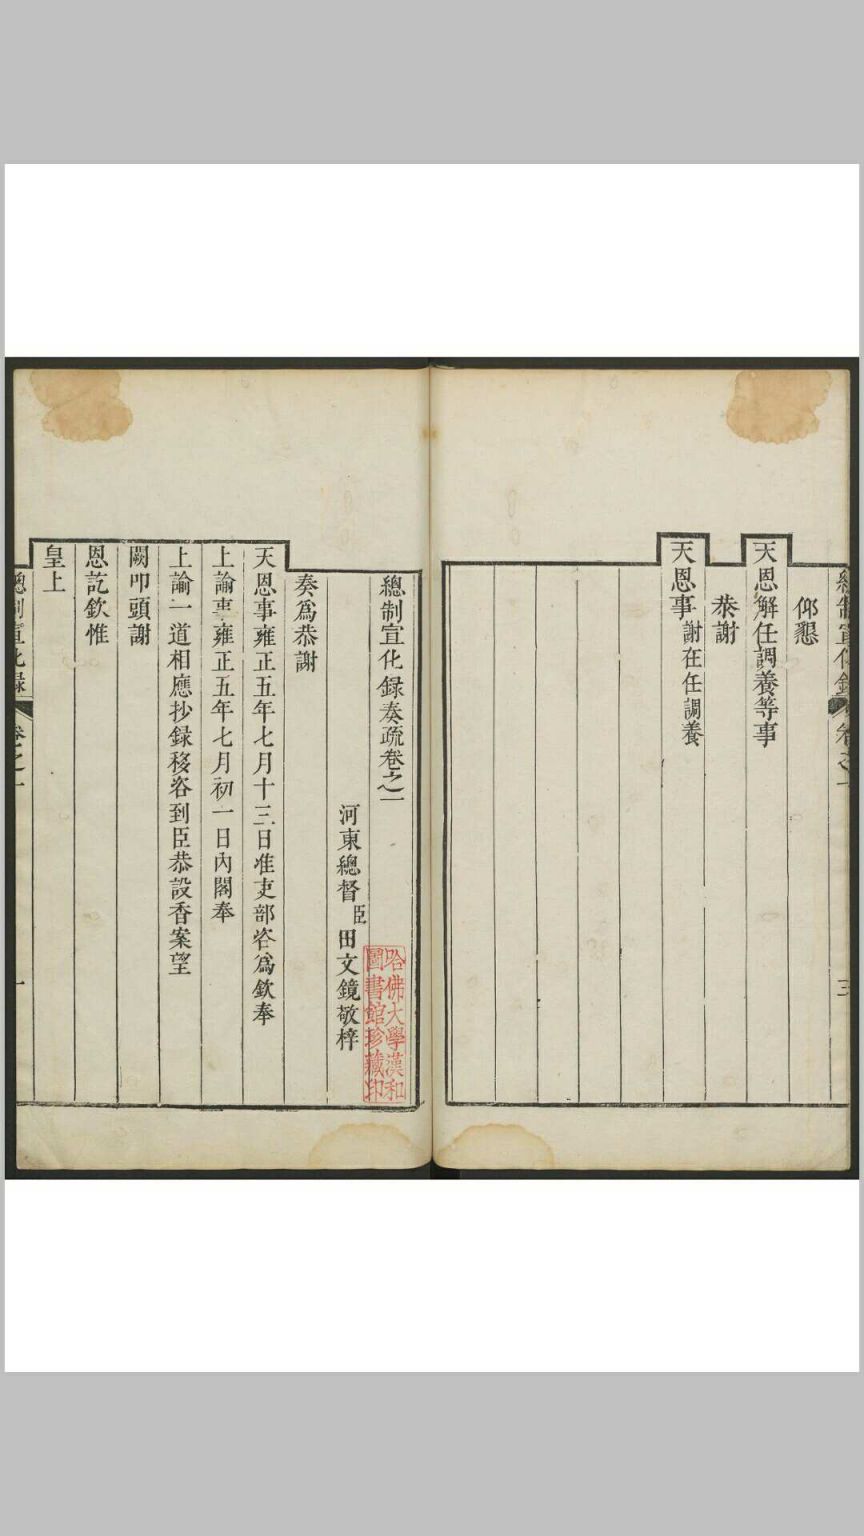 總制宣化錄 卷之一 三
仰懇
天恩解任調養等事
恭謝
天恩事謝在任調養
總制宣化錄奏疏卷之一
河東總督臣田文鏡敬梓
哈佛大學漢和
圖書館珍藏印
奏爲恭謝
天恩事雍正五年七月十三日准吏部咨爲欽奉
上諭事雍正五年七月初一日內閣奉
上諭一道相應抄錄移咨到臣恭設香案望
闕叩頭謝
恩訖欽惟
皇上
總制宣化錄 卷之一 一